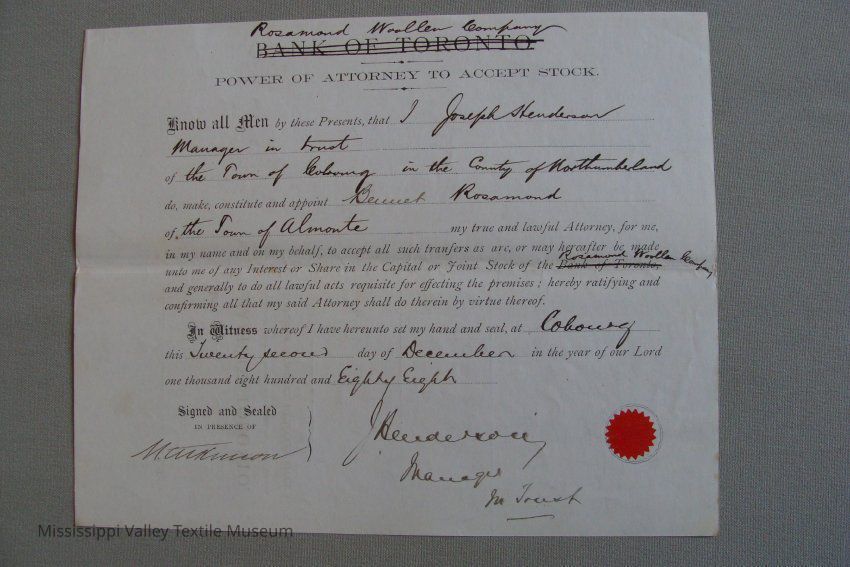 Rosamond Woollen Company
BANK OF TORONTO
POWER OF ATTORNEY TO ACCEPT STOCK.
Know all Men by these Presents, that I Joseph Henderson
Manager in trust
of the Town of Cobourg in the County of Northumberland
do, make, constitute and appoint Bennet Rosamond
of the Town of Almonte my true and lawful Attorney, for me,
in my name and on my behalf, to accept all such tranfers as are, or may hereafter be made
Rosamond Woollen Company
unto me of any Interest or Share in the Capital or Joint Stock of the Bank of Toronto,
and generally to do all lawful acts requisite for effecting the premises ; hereby ratifying and
confirming all that my said Attorney shall do therein by virtue thereof.
In Witness whereof I have hereunto set my hand and seal, at Cobourg
this Twenty second day of December in the year of our Lord
one thousand eight hundred and Eighty Eight
Signed and Sealed
IN PRESENCE OF
J Henderson
Manager
In Trust
Mississippi Valley Textile Museum